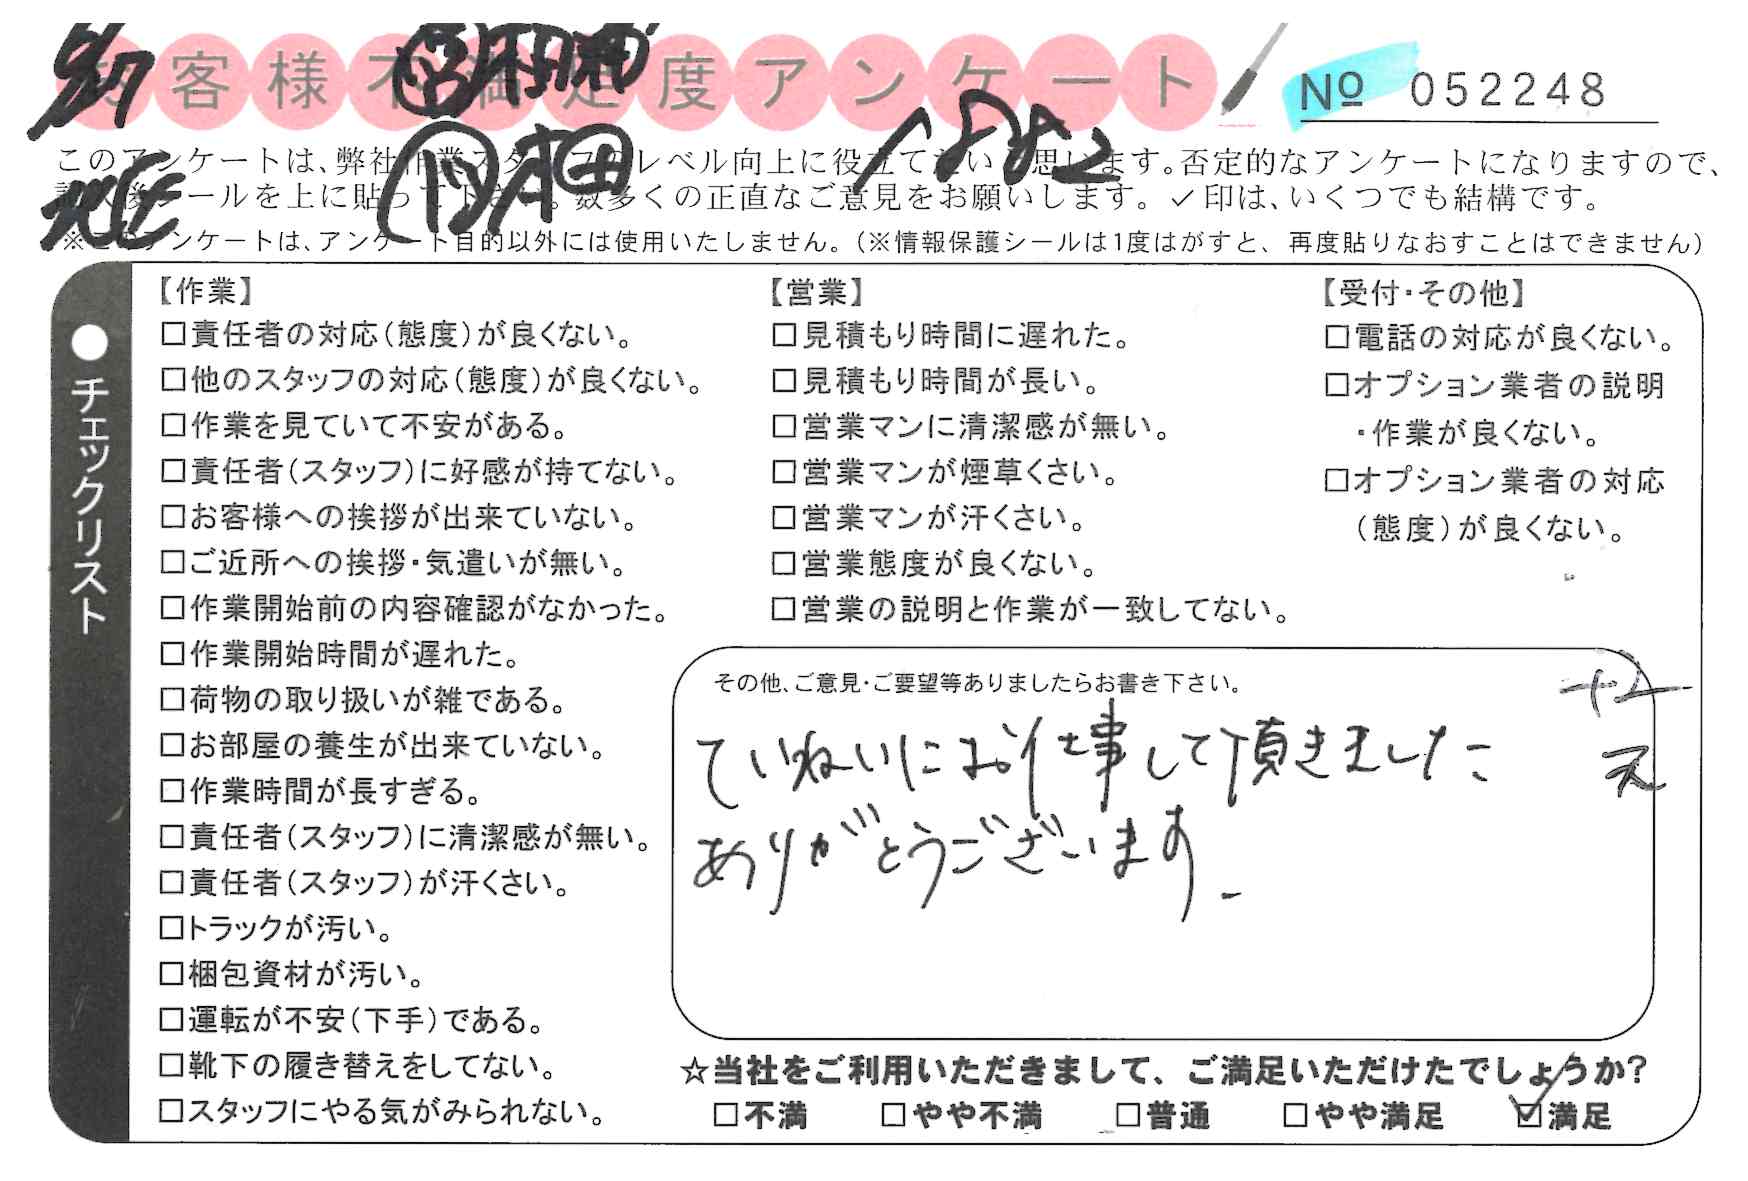 お客様不満足度アンケート
№ 052248
このアンケートは、弊社作業スタッフのレベル向上に役立てたいと思います。否定的なアンケートになりますので、
記入後シールを上に貼って下さい。数多くの正直なご意見をお願いします。✓印は、いくつでも結構です。
※このアンケートは、アンケート目的以外には使用いたしません。(※情報保護シールは1度はがすと、再度貼りなおすことはできません)
●チェックリスト
【作業】
□責任者の対応(態度)が良くない。
□他のスタッフの対応(態度)が良くない。
□作業を見ていて不安がある。
□責任者(スタッフ)に好感が持てない。
□お客様への挨拶が出来ていない。
□ご近所への挨拶・気遣いが無い。
□作業開始前の内容確認がなかった。
□作業開始時間が遅れた。
□荷物の取り扱いが雑である。
□お部屋の養生が出来ていない。
□作業時間が長すぎる。
□責任者(スタッフ)に清潔感が無い。
□責任者(スタッフ)が汗くさい。
□トラックが汚い。
□梱包資材が汚い。
□運転が不安(下手)である。
□靴下の履き替えをしてない。
□スタッフにやる気がみられない。
【営業】
□見積もり時間に遅れた。
□見積もり時間が長い。
□営業マンに清潔感が無い。
□営業マンが煙草くさい。
□営業マンが汗くさい。
□営業態度が良くない。
□営業の説明と作業が一致してない。
【受付・その他】
□電話の対応が良くない。
□オプション業者の説明
・作業が良くない。
□オプション業者の対応
(態度)が良くない。
その他、ご意見・ご要望等ありましたらお書き下さい。
ていねいにお仕事して頂きました
ありがとうございます。
☆当社をご利用いただきまして、ご満足いただけたでしょうか?
□不満 □やや不満 □普通 □やや満足 ☑満足